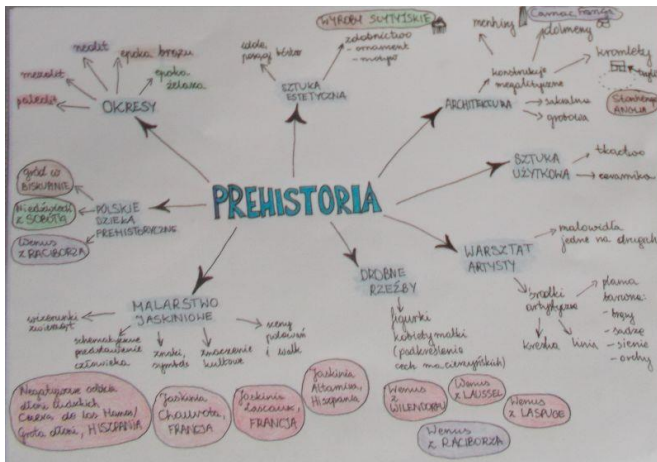 PREHISTORIA
OKRESY
paleolit
mezolit
neolit
epoka brązu
epoka
żelaza
SZTUKA
ESTETYCZNA
WYROBY SCYTYJSKIE
zdobnictwo
- ornament
- motyw
ARCHITEKTURA
konstrukcje
megalityczne
menhiry
Carnac Francja
dolmeny
kromlechy
Stonehenge
ANGLIA
sakralna
grobowa
SZTUKA
UŻYTKOWA
tkactwo
ceramika
WARSZTAT
ARTYSTY
malowidła
jedne na drugich
środki
artystyczne
kreska
linia
plama
barwna:
- sadzę
- sienie
- ochry
DROBNE
RZEŹBY
figurki
kobiety matki
(podkreślenie
cech macierzyńskich)
Wenus
z WILENDORFU
Wenus
z LAUSSEL
Wenus
z LASPUGE
Wenus
z RACIBORZA
MALARSTWO
JASKINIOWE
wizerunki
zwierząt
schematyczne
przedstawienie
człowieka
znaki,
symbole
znaczenie
kultowe
sceny
polowań
i walk
Negatywowe odbicia
dłoni ludzkich
Cueva de las Manos/
Grota dłoni, HISZPANIA
Jaskinia
Chauveta,
FRANCJA
Jaskinia
Lascaux,
FRANCJA
Jaskinia
Altamira,
Hiszpania
POLSKIE
DZIEŁA
PREHISTORYCZNE
gród w
BISKUPINIE
Niedźwiedź
z SOBÓTKI
Wenus
z RACIBORZA